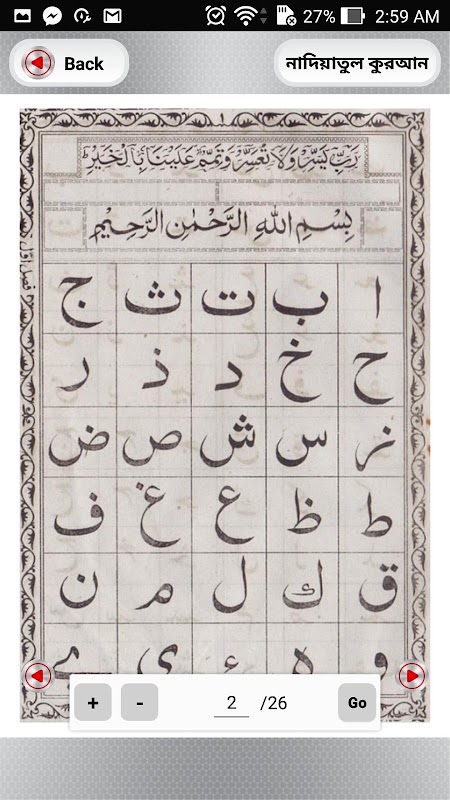 27% 2:59 AM
Back নাদিয়াতুল কুরআন
١
رَبِّ يَسِّرْ وَلَا تُعَسِّرْ وَتَمِّمْ عَلَيْنَا بِالْخَيْرِ
بِسْمِ اللهِ الرَّحْمٰنِ الرَّحِيْمِ
ا ب ت ث ج
ح خ د ذ ر
ز س ش ص ض
ط ظ ع غ ف
ق ك ل م ن
و ه ء ي ے
+ - 2 /26 Go